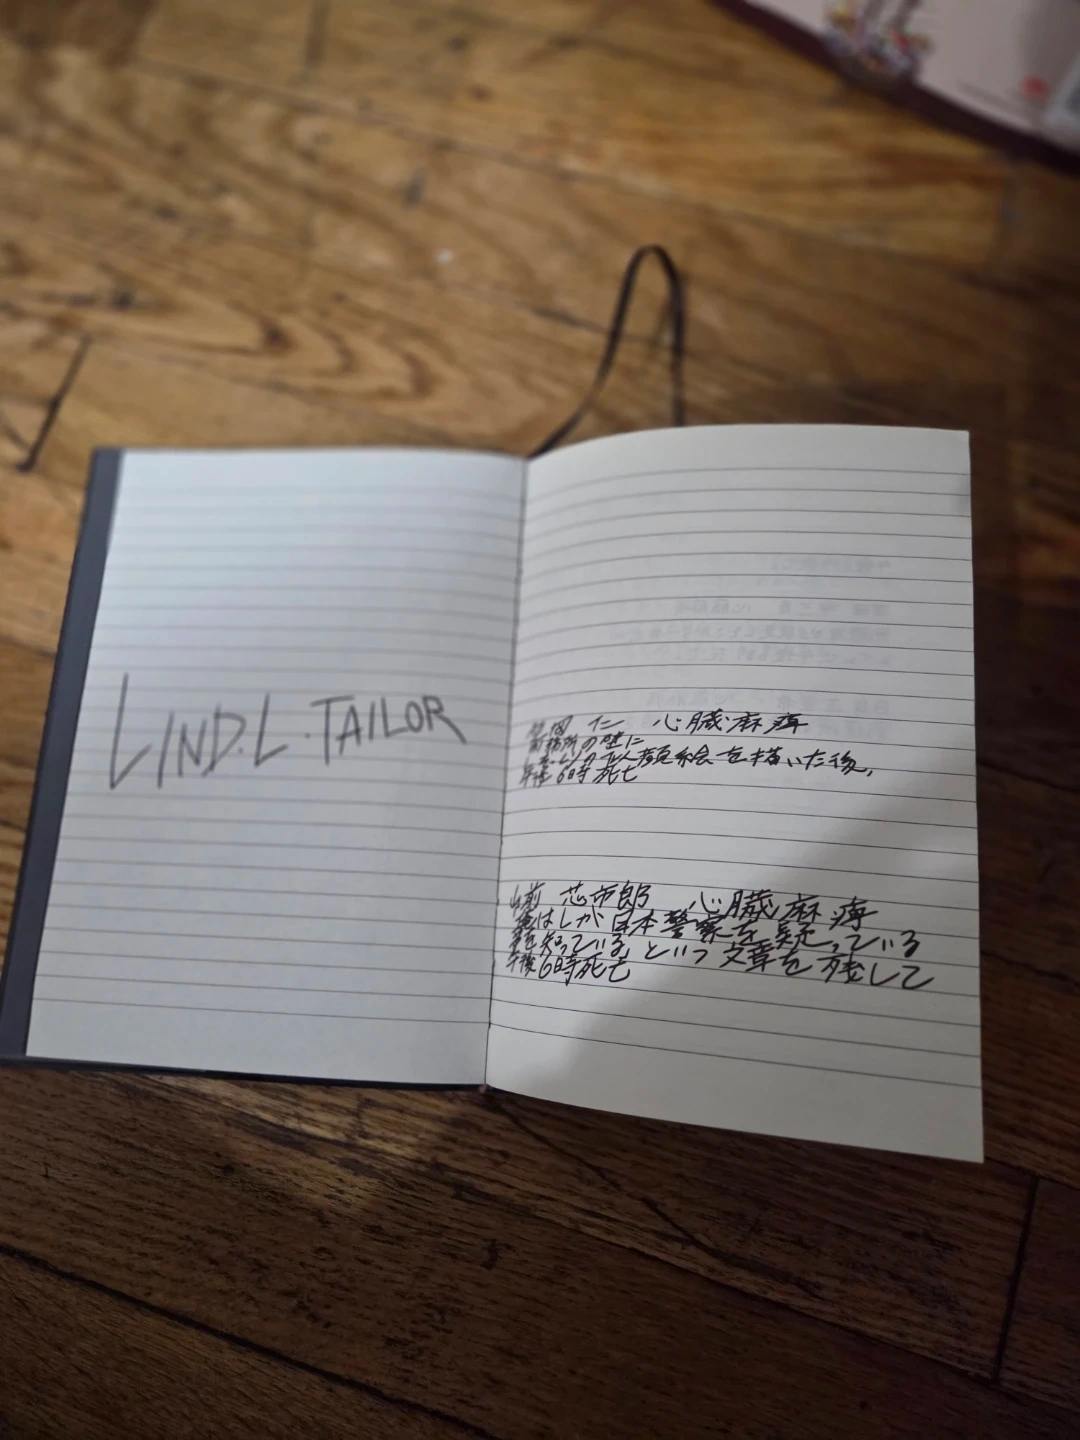 LIND.L.TAILOR
仁 心臓麻痺
刑務所の壁に
の犯人顔絵を描いた後,
午後6時死亡
山前 芯市郎 心臓麻痺
俺はしが日本警察を疑っている
事を知っている, という文章を残して
午後6時死亡